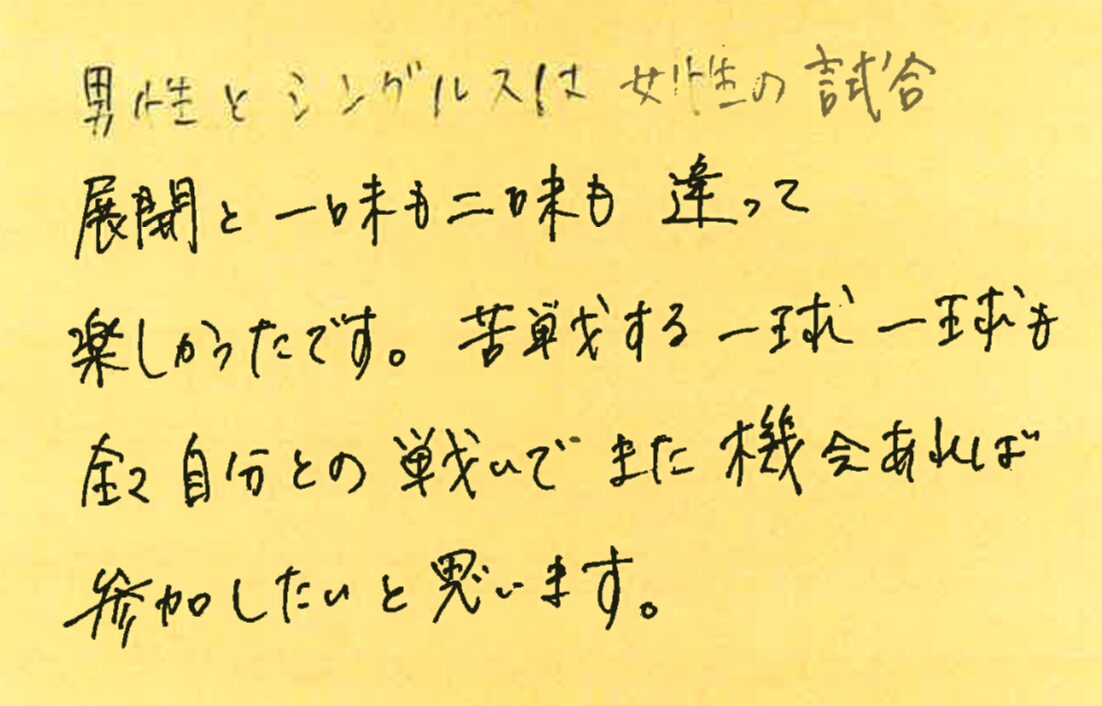 男性とシングルスは女性の試合
展開と一味も二味も違って
楽しかったです。苦戦する一球一球も
全て自分との戦いでまた機会あれば
参加したいと思います。